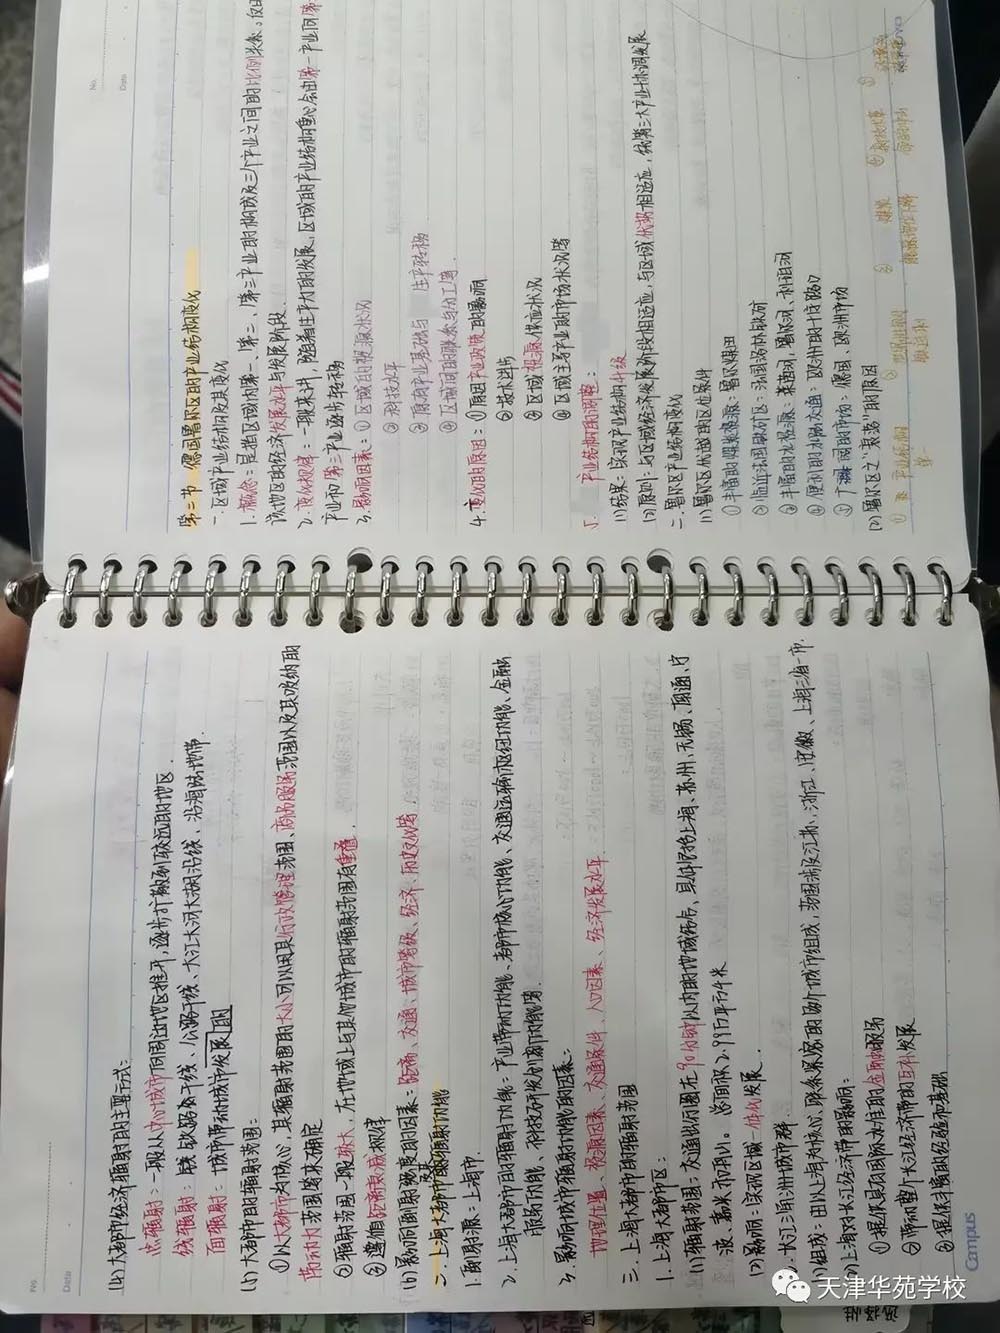 (4) 大都市经济辐射的主要方式:
点辐射:一般从中心城市向周边地区推开,逐步扩散到较远的地区.
线辐射:铁路干线、公路干线、大江大河大湖沿线、沿海陆地带.
面辐射:城市带动城市发展的
(5) 大都市的辐射范围:
①以大都市为核心,其辐射范围的大小可以用其行政管理范围、商品服务范围以及其吸纳的
劳动力范围等来确定
②辐射范围一般较大,在地域上与其他城市的辐射范围有重叠
③遵循距离衰减规律
(6) 影响因素:距离、交通、城市等级、经济、历史文化等
二、上海大都市的辐射功能
1. 辐射源:上海市.
2. 上海大都市的辐射功能:产业带动功能、都市核心功能、交通运输枢纽功能、金融
服务功能、科技研发创新功能等.
3. 影响城市辐射功能的因素:
地理位置、资源因素、交通条件、人口因素、经济发展水平.
三、上海大都市的辐射范围
1. 上海大都市区:
(1) 辐射范围:交通出行圈在90分钟以内的地域,具体包括上海、苏州、无锡、南通、宁
波、嘉兴和舟山。总面积2.99万平方千米
(2) 影响:实现区域一体化发展.
2. 长江三角洲城市群
(1) 组成:由以上海为核心、联系紧密的多个城市组成,范围涉及江苏、浙江、安徽、上海三省一市.
(2) 上海对长江经济带的影响:
①提供具有国际水准的金融服务
②带动整个长江经济带的互补发展
③提供丰富的经验和基础
Campus
No.
Date
第二节 德国鲁尔区的产业结构变化
一、区域产业结构及其变化
1. 概念:是指区域内第一、第二、第三产业的构成及三个产业之间的比例关系,反映
该地区的经济发展水平与发展阶段.
2. 变化规律:一般来讲,随着生产力的发展,区域的产业结构重心会由第一产业向第
产业和第三产业逐步转移
3. 影响因素:①区域的资源状况
②科技水平
③原有产业基础与 生产转移
④区域间的联系与分工等.
4. 变化的原因:①原因产业政策的影响
②技术进步
③区域资源供应状况
④区域主导产业的市场状况等
5. 产业结构的调整:
(1) 结果:实现产业结构升级
(2) 原则:与区域经济发展阶段相适应,与区域优势相适应,统筹三大产业协调发展
二、鲁尔区产业结构变化
(1) 鲁尔区优越的区位条件
①丰富的煤炭资源:鲁尔煤田
②临近法国铁矿区:法国洛林铁矿
③丰富的水资源:莱茵河、鲁尔河、利珀河
④便利的水陆交通:欧洲的十字路口
⑤广阔的市场:德国、欧洲市场
(2) 鲁尔区之“衰落”的原因
No.
Date
天津华苑学校